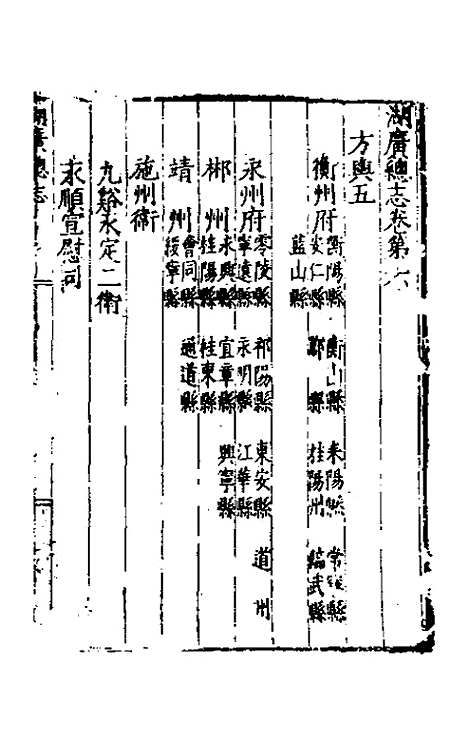 湖廣總志卷第六
方輿五
衡州府 衡陽縣 衡山縣 耒陽縣 常寧縣
安仁縣 酃縣 桂陽州 臨武縣
藍山縣
永州府 零陵縣 祁陽縣 東安縣 道州
寧遠縣 永明縣 江華縣
郴州 永興縣 宜章縣 興寧縣
桂陽縣 桂東縣
靖州 會同縣 通道縣
綏寧縣
施州衛
九谿永定二衛
永順宣慰司
湖廣總志